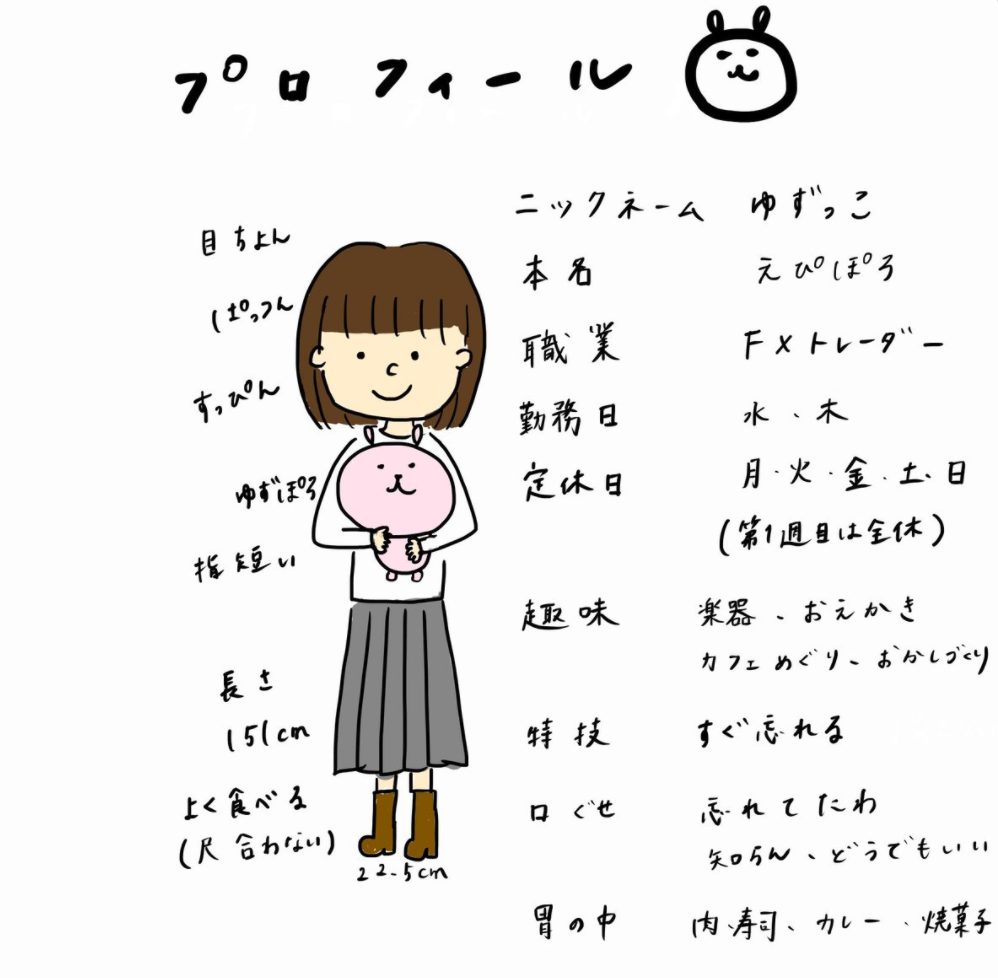 プロフィール
目ちょん
ぱっつん
すっぴん
ゆずぽろ
指短い
長さ
151cm
よく食べる
(尺合わない)
22.5cm
ニックネーム ゆずっこ
本名 えぴぽろ
職業 FXトレーダー
勤務日 水、木
定休日 月・火・金・土・日
(第1週目は全休)
趣味 楽器、おえかき
カフェめぐり、おかしづくり
特技 すぐ忘れる
口ぐせ 忘れてたわ
知らん、どうでもいい
胃の中 肉、寿司、カレー、焼菓子